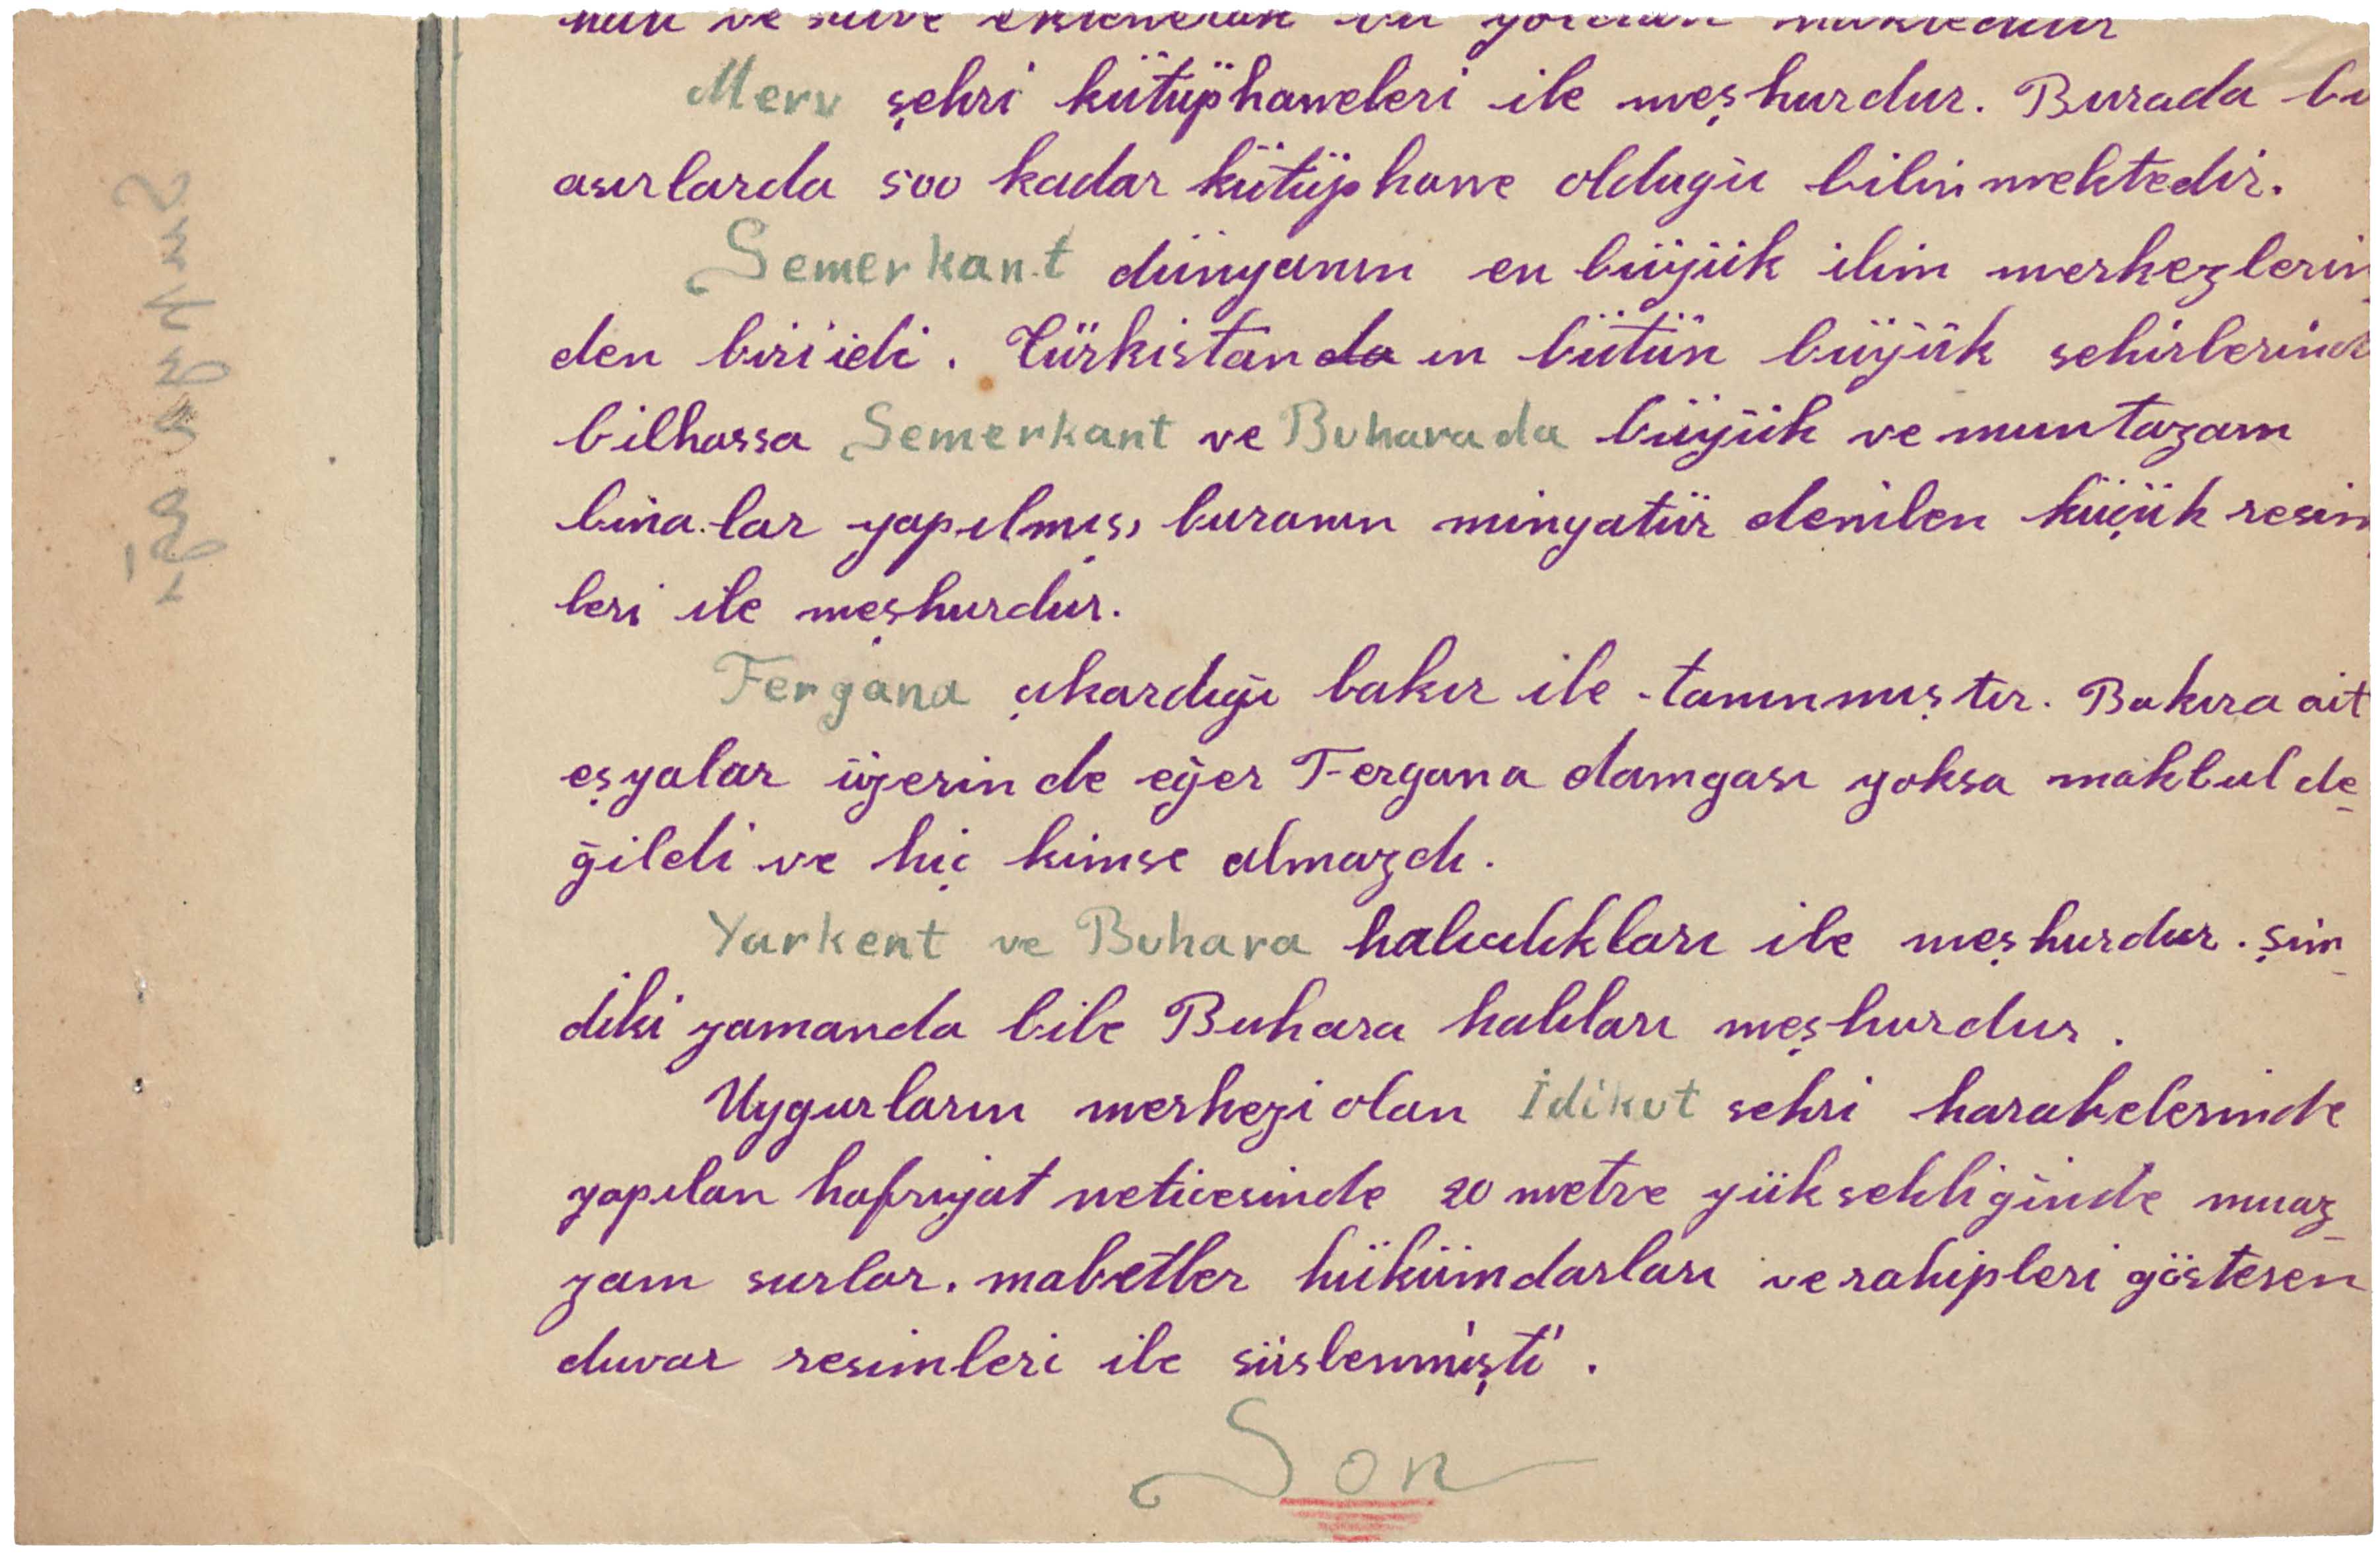 Merv şehri kütüphaneleri ile meşhurdur. Burada bu
asırlarda 500 kadar kütüphane olduğu bilinmektedir.
Semerkant dünyanın en büyük ilim merkezlerin
den biri idi. Türkistanda ın bütün büyük sehirlerinde
bilhassa Semerkant ve Buharada büyük ve muntazam
binalar yapılmış, buranın minyatür denilen küçük resim
leri ile meşhurdur.
Fergana çıkardığı bakır ile tanınmıştır. Bakıra ait
eşyalar üzerinde eğer Fergana damgası yoksa makbul de_
ğildi ve hiç kimse almazdı.
Yarkent ve Buhara halıcılıkları ile meşhurdur. Şim_
diki zamanda bile Buhara halıları meşhurdur.
Uygurların merkezi olan İdikut sehri harabelerinde
yapılan hafriyat neticesinde 20 metre yüksekliğinde muaz_
zam surlar, mabetler hükümdarları ve rahipleri gösteren
duvar resimleri ile süslenmişti.
Son